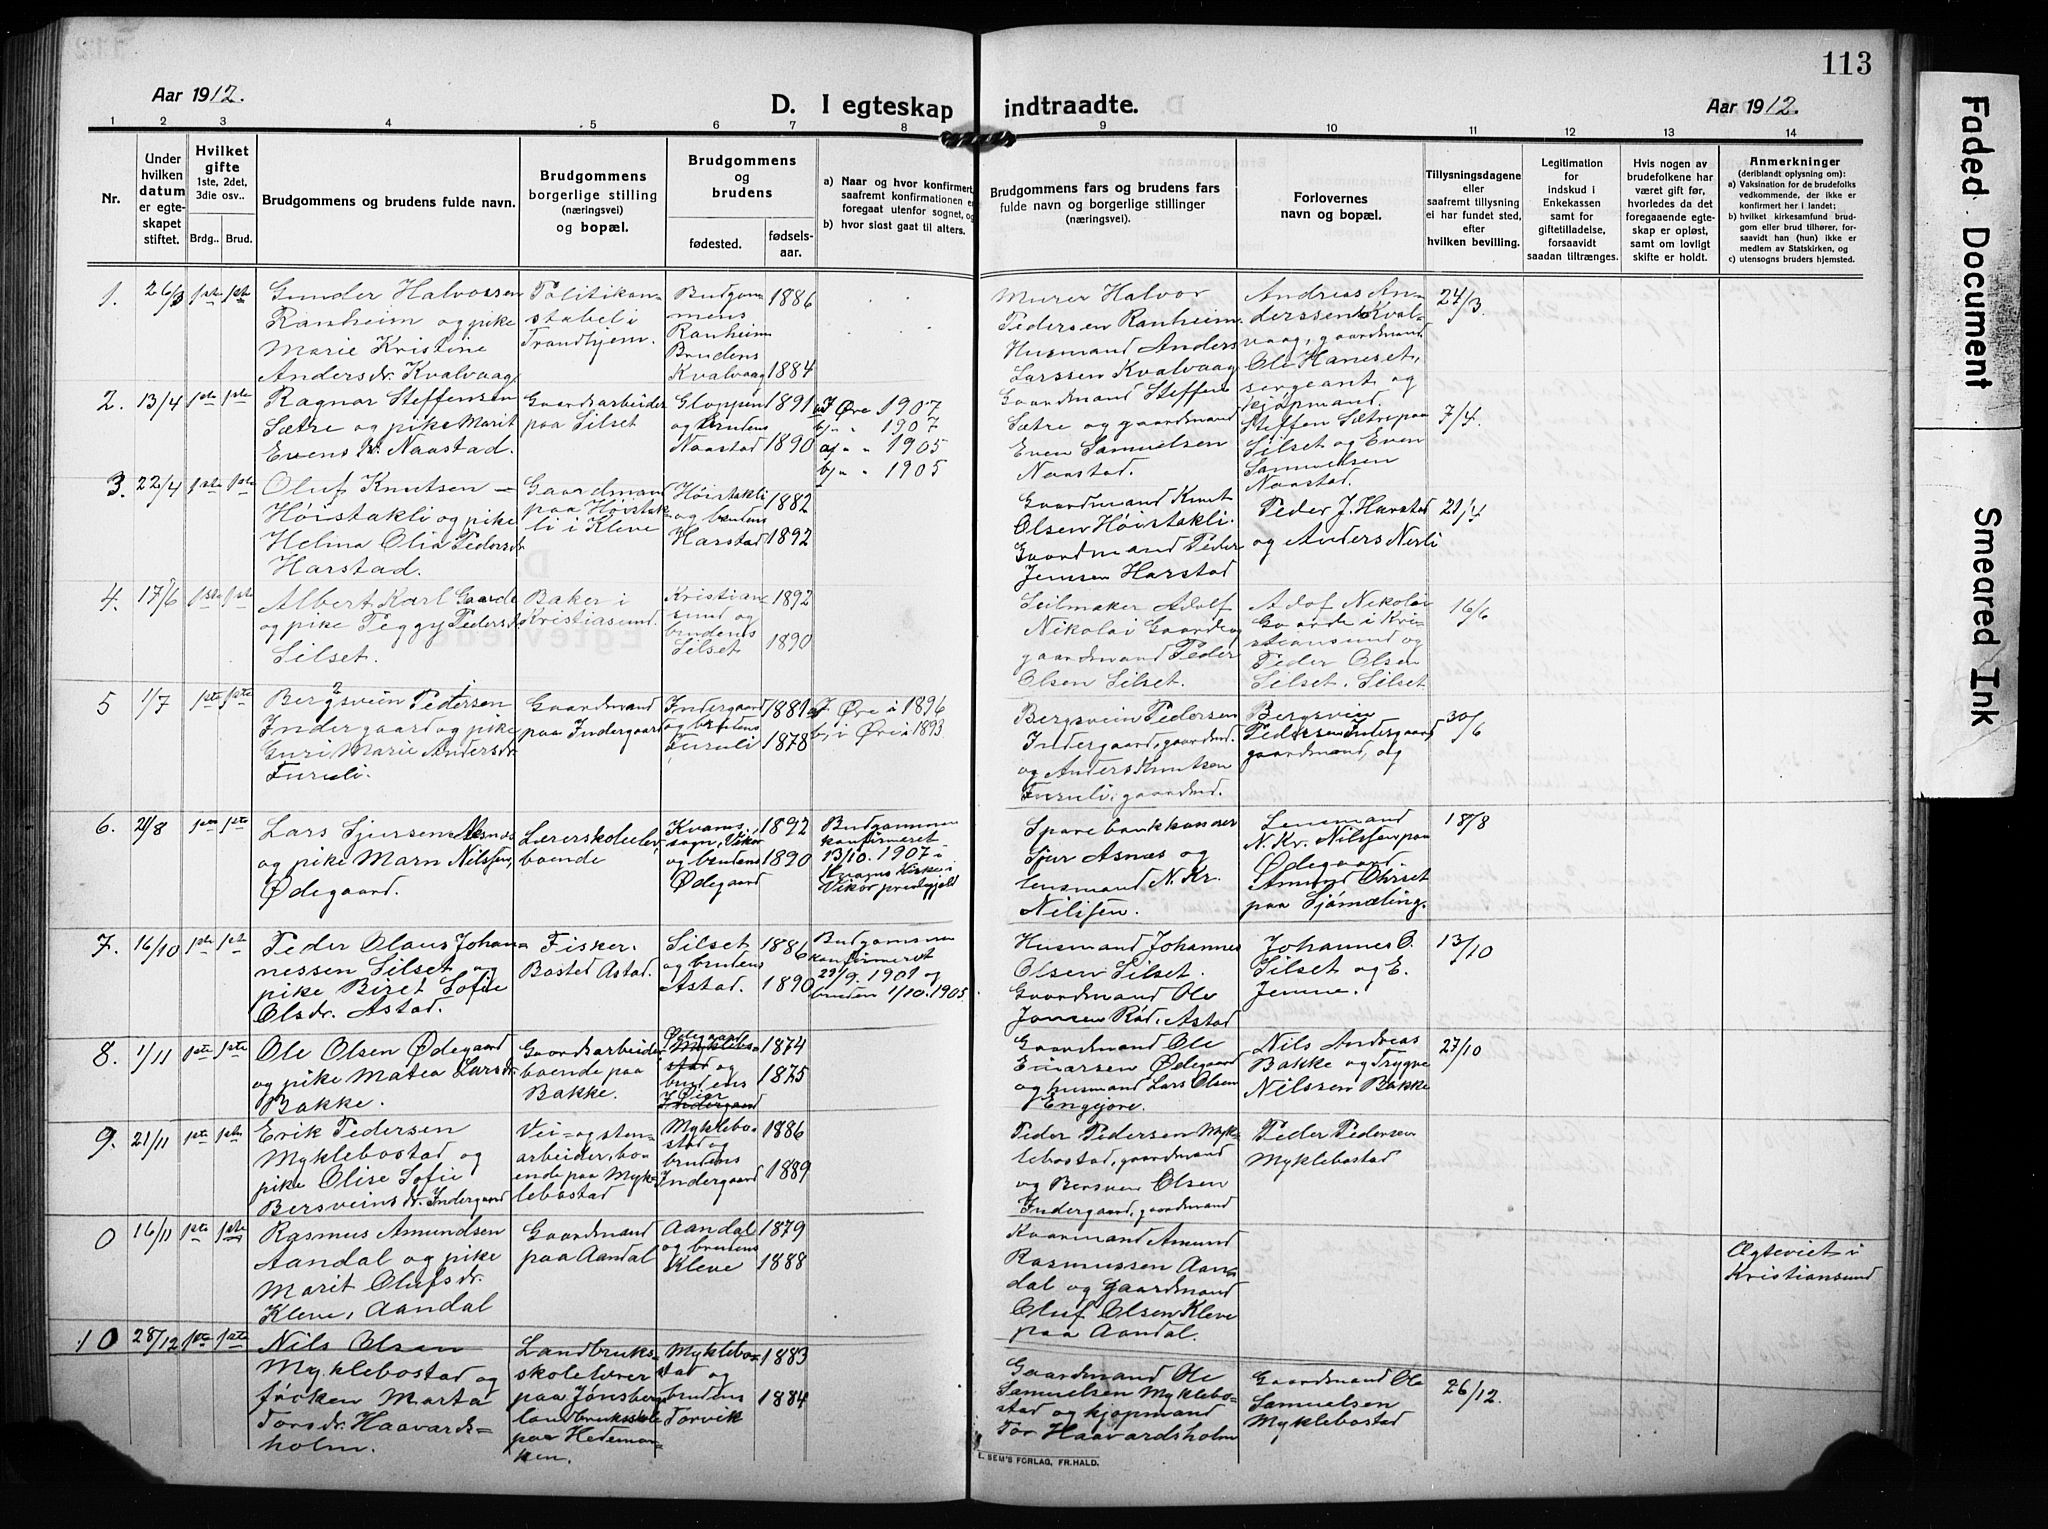 113
Aar 1912.
D. I egteskap indtraadte.
Aar 1912.
1 2 3 4 5 6 7 8 9 10 11 12 13 14
Nr.
Under hvilken datum er egteskapet stiftet.
Hvilket gifte 1ste, 2det, 3die osv..
Brdg.. Brud.
Brudgommens og brudens fulde navn.
Brudgommens borgerlige stilling (næringsvei) og bopæl.
Brudgommens og brudens
fødested. fødselsaar.
a) Naar og hvor konfirmert, saafremt konfirmationen er foregaat utenfor sognet, og
b) hvor sidst gaat til alters.
Brudgommens fars og brudens fars fulde navn og borgerlige stillinger (næringsvei).
Forlovernes navn og bopæl.
Tillysningsdagene eller saafremt tillysning ei har fundet sted, efter hvilken bevilling.
Legitimation for indskud i Enkekassen samt for giftetilladelse, forsaavidt saadan tiltrænges.
Hvis nogen av brudefolkene har været gift før, hvorledes da det foregaaende egteskap er opløst, samt om lovligt skifte er holdt.
Anmerkninger (deriblandt oplysning om):
a) Vaksination for de brudefolks vedkommende, der ikke er konfirmert her i landet;
b) hvilket kirkesamfund brudgom eller brud tilhører, forsaavidt han (hun) ikke er medlem av Statskirken, og
c) utensogns bruders hjemsted.
1. 26/3 1ste 1ste
Gunder Halvorssen
Ranheim og pike
Marie Kristine
Andersdr. Kvalvaag.
Politikon-
stabel i
Trondhjem.
Brudgom-
mens
Ranheim
Brudens
Kvalvaag
1886
1884
Murer Halvor
Pedersen Ranheim.
Husmand Anders
Larssen Kvalvaag
Andreas An-
derssen Kval-
vaag, gaardmand
Ole Hanset,
sergeant og
kjøpmand.
24/3.
2. 13/4 1ste 1ste
Ragnar Steffensen
Sætre og pike Marit
Evens dr. Naastad.
Gaardsarbeider
paa Silset
Gloppen
og brudens
Naastad
1891
1890
a) I Øre 1907
b) " " 1907
a) " " 1905
b) " " 1905
Gaardmand Steffen
Sætre og gaardmand
Even Samuelsen
Naastad.
Steffen Sætre paa
Silset og Even
Samuelsen
Naastad.
7/4.
3. 22/4 1ste 1ste
Oluf Knutsen
Høistakli og pike
Helina Olia Pedersdr.
Harstad.
Gaardmand
paa Høistak-
li i Kleve
Høistakli
og brudens
Harstad
1882
1892
Gaardmand Knut
Olsen Høistakli.
Gaardmand Peder
Jenssen Harstad
Peder J. Harstad
og Anders Nerli
21/4
4. 17/6 1ste 1ste
Albert Karl Gaarde
og pike Peggy Pedersdr.
Silset.
Baker i
Kristiasund.
Kristian-
sund og
brudens
Silset
1892
1890
Seilmaker Adolf
Nikolai Gaarde og
gaardmand Peder
Olsen Silset.
Adof Nikolai
Gaarde i Kri-
stiansund og
Peder Olsen
Silset. Silset
16/6
5 1/7 1ste 1ste
Bergsvein Pedersen
Indergaard og pike
Guri Marie Andersdr.
Furuli.
Gaardmand
paa Indergaard
Indergaard
og brudens
Furuli
1881
1878
a) I Øre i 1896
b) i Øre i 1893
Bergsvein Pedersen
Indergaard, gaardmd.
og Anders Knutsen
Furuli, gaardmd.
Bergsvein
Pedersen Indergaard
gaardmand, og
30/6
6. 21/8 1ste 1ste
Lars Sjursen Aasnæs
og pike Marn Nilssen,
Ødegaard.
Lærerskoleelev,
boende
Kvams
sogn, Vikør
og brudens
Ødegaard
1892
1890
Brudgommen
konfirmeret
13/10. 1907 i
Kvams Kirke i
Vikør præstegjeld
Sparebankkasserer
Sjur Asnæs og
lensmand N. Kr.
Nilssen.
Lensmand
N. Kr. Nilssen paa
Ødegaard
Amund Ohrset
paa Sjømæling.
18/8
7. 16/10 1ste 1ste
Peder Olaus Johan-
nessen Silset og
pike Beret Sofie
Olsdr. Astad.
Fisker.
Bosted Astad.
Silset
og brudens
Astad.
1886
1890
Brudgommen
konfirmeret
29/9. 1901 og
bruden 1/10. 1905.
Husmand Johannes
Olsen Silset.
Gaardmand Ole
Jonsen Rød, Astad
Johannes O.
Silset og E.
Jenme.
13/10
8. 1/11 1ste 1ste
Ole Olsen Ødegaard
og pike Matea Larsdr.
Bakke.
Gaardsarbeider
boende paa
Bakke.
Ødegaard
Myklebo-
stad og
brudens
Øier
Indergaard
1874
1875
Gaardmand Ole
Einarsen Ødegaard
og husmand Lars Olsen
Engejore.
Nils Andreas
Bakke og Trygve
Nilssen Bakke
27/10
9. 21/11 1ste 1ste
Erik Pedersen
Myklebostad og
pike Olise Sofie
Bersveins dr. Indergaard
Vei- og sten-
arbeider, bo-
ende paa Myk-
lebostad
Myklebo-
stad og
brudens
Indergaard
1886
1889
Peder Pedersen Myk-
lebostad, gaardmand
og Bersven Olsen
Indergaard, gaardmand
Peder Pedersen
Myklebostad
0 16/11 1ste 1ste
Rasmus Amundsen
Aandal og pike
Marit Olufsdr.
Kleve, Aandal
Gaardmand
paa Aandal
Aandal
og brudens
Kleve
1879
1888
Kaarmand Amund
Rasmussen Aan-
dal og gaardmand
Oluf Olsen Kleve
paa Aandal.
Ægteviet i
Kristiansund
10 28/12 1ste 1ste
Nils Olsen
Myklebostad og
frøken Marta
Tors dr. Haavards-
holm.
Landbruks-
skolelærer
paa Jønsberg
landbruksskole
paa Hedemar-
ken.
Myklebo-
stad og
brudens
Torvik
1883
1884
Gaardmand Ole
Samuelsen Myklebo-
stad og kjøpmand
Tor Haavardsholm
Gaardmand Ole
Samuelsen
Myklebostad
26/12.
E. SEM'S FORLAG, FR.HALD.
Faded Document
Smeared Ink